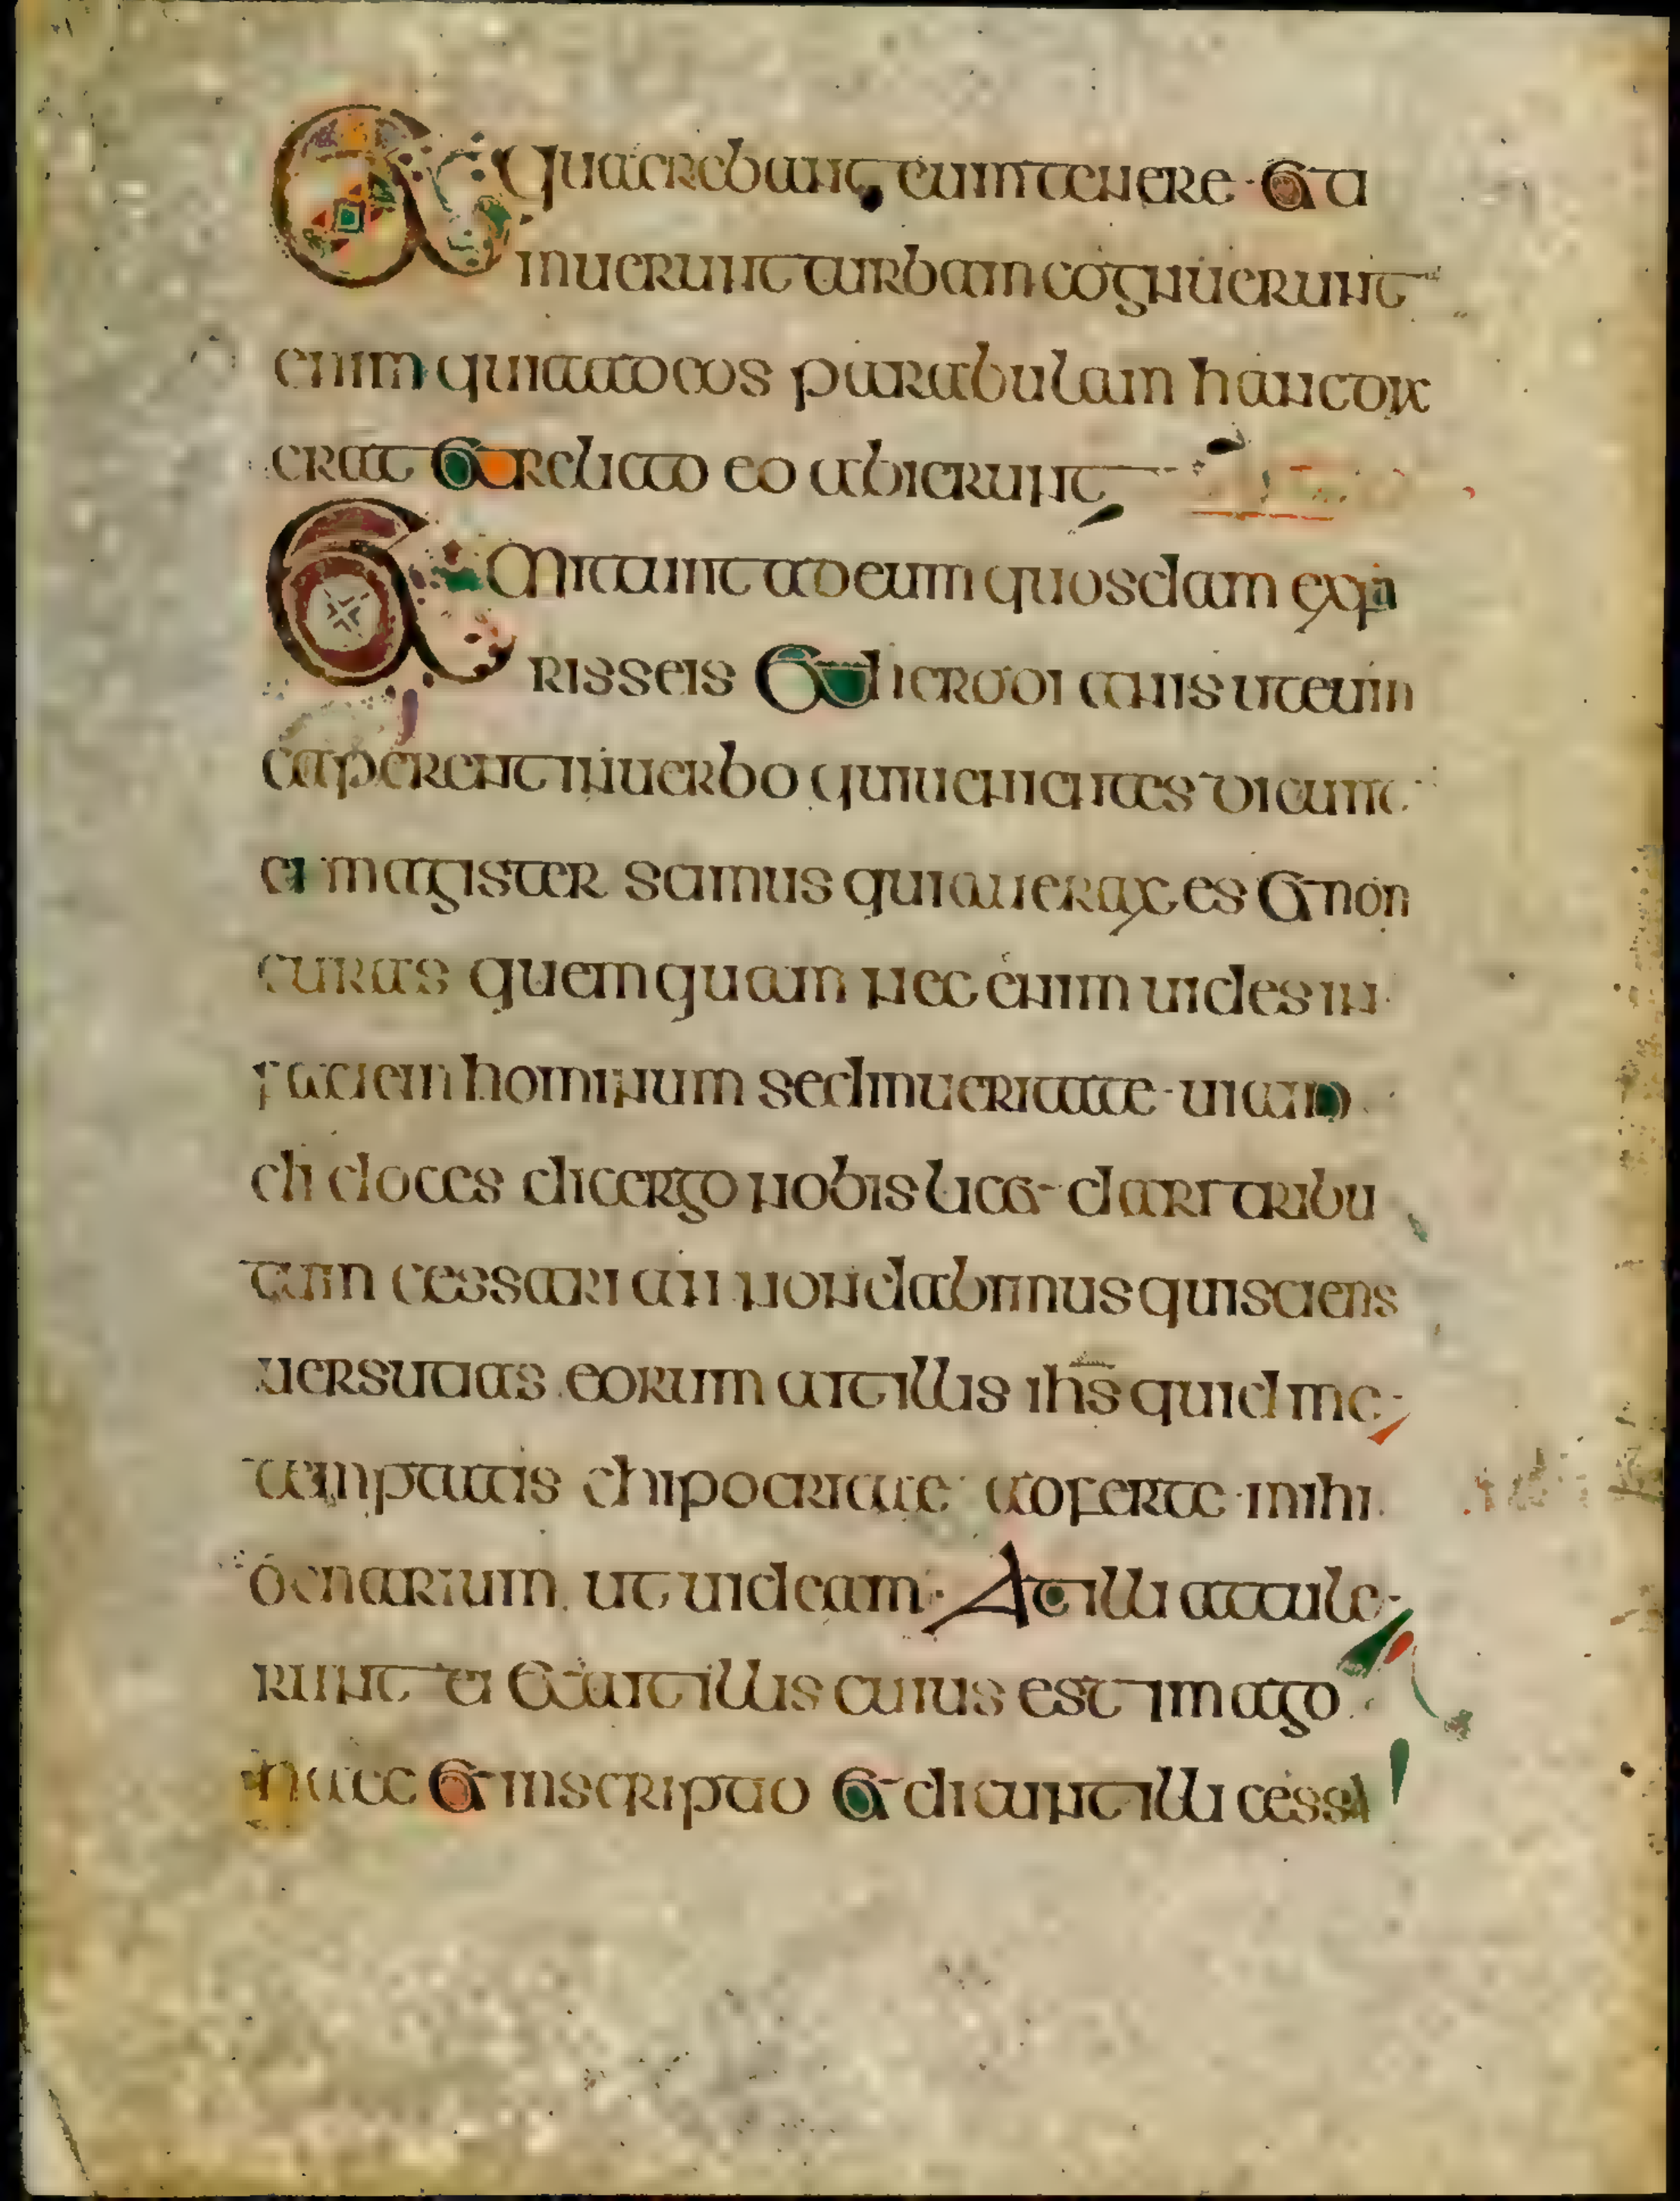 Et quaerebant eum tenere et ti
muerunt turbam cognuerunt
enim quia ad eos parabulam hanc dix
erat et relicto eo abierunt
Et mittunt ad eum quosdam ex fa
risseis et hierodianis ut eum
caperent in uerbo qui uenientes dicunt
ei magister scimus quia uerax es et non
curas quemquam nec enim uides in
faciem hominum sed in ueritate uiam
di doces dic ergo nobis licet dari tribu
tum cessari an non dabimus qui sciens
uersutias eorum ait illis ihs quid me
temptatis hipocritae adferte mihi
denarium ut uideam At illi attule
runt ei et ait illis cuius est imago
haec et inscriptio et dicunt illi cessa